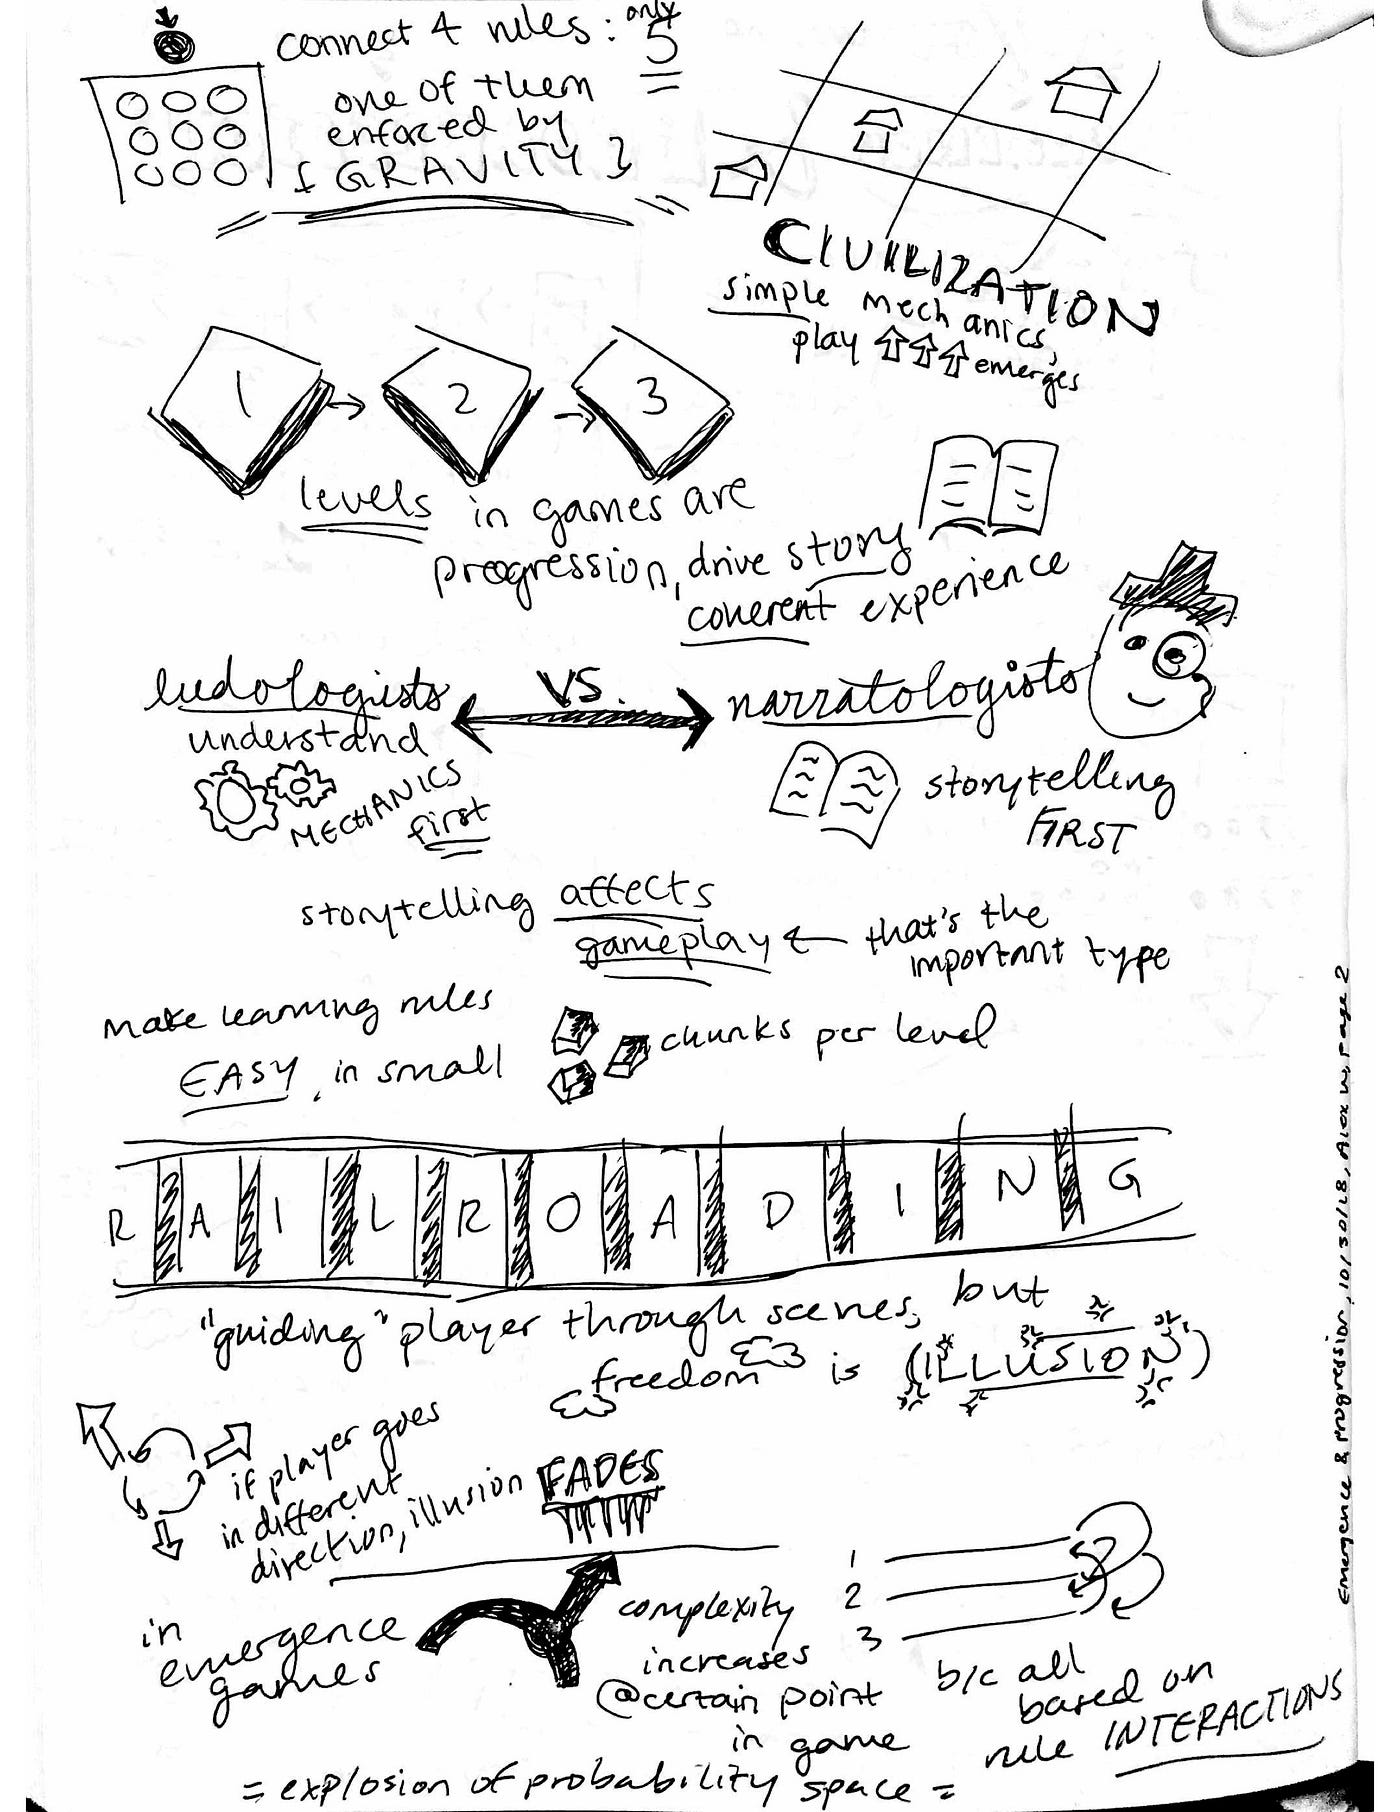 connect 4 rules: only 5
one of them
enforced by
GRAVITY
CIVILIZATION
simple mechanics,
play emerges
1 2 3
levels in games are
progression, drive story
coherent experience
ludologists VS. narratologists
understand
MECHANICS
first
storytelling
FIRST
storytelling affects
gameplay ← that's the
important type
make learning rules
EASY, in small chunks per level
RAILROADING
"guiding" player through scenes, but
freedom is (ILLUSION)
if player goes
in different
direction, illusion FADES
in
emergence
games
complexity
increases
@certain point
in game
1
2
3
b/c all
based on
rule INTERACTIONS
= explosion of probability space =
Emergence & Progression, 10/30/18, Alex W, Page 2